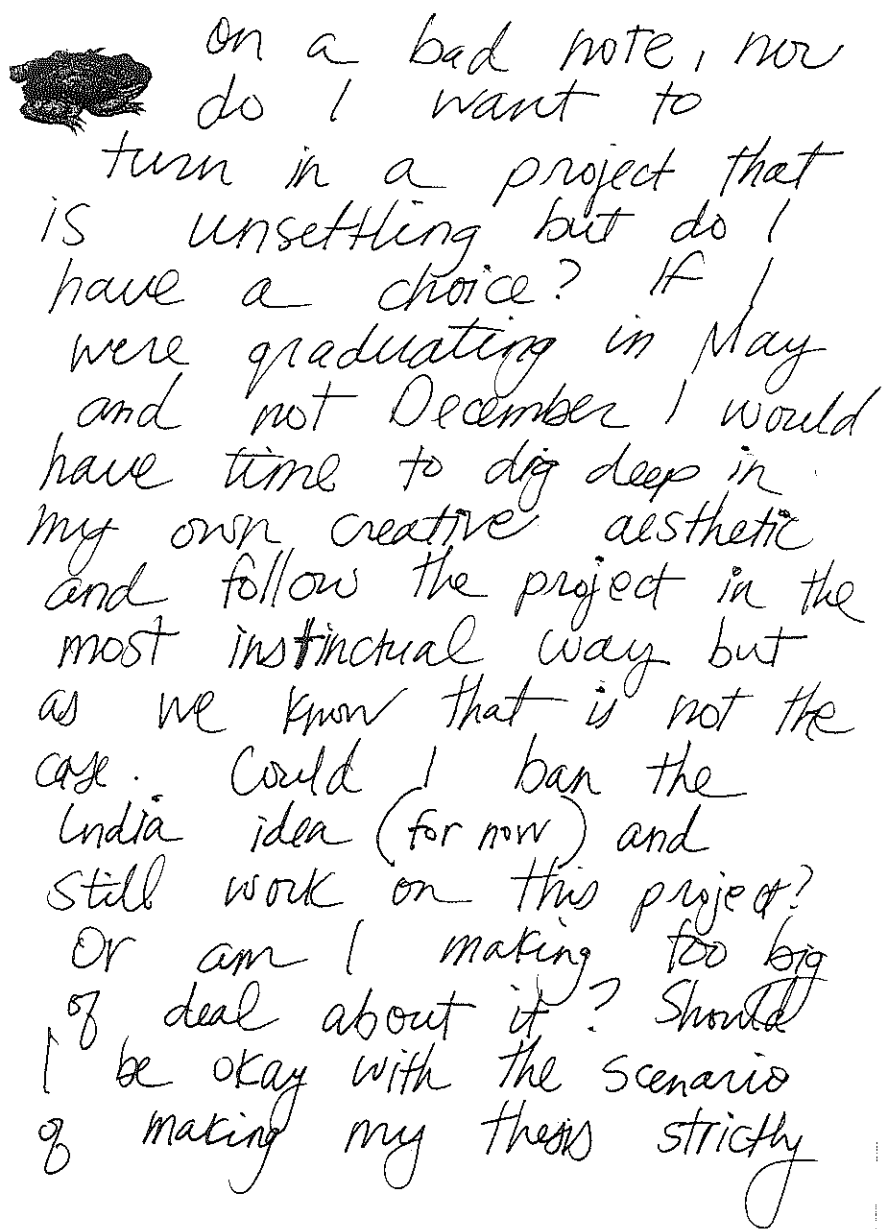 on a bad note, nor
do I want to
turn in a project that
is unsettling but do I
have a choice? If I
were graduating in May
and not December I would
have time to dig deep in
my own creative aesthetic
and follow the project in the
most instinctual way but
as we know that is not the
case. Could I ban the
India idea (for now) and
still work on this project?
Or am I making too big
of deal about it? Should
I be okay with the scenario
of making my thesis strictly